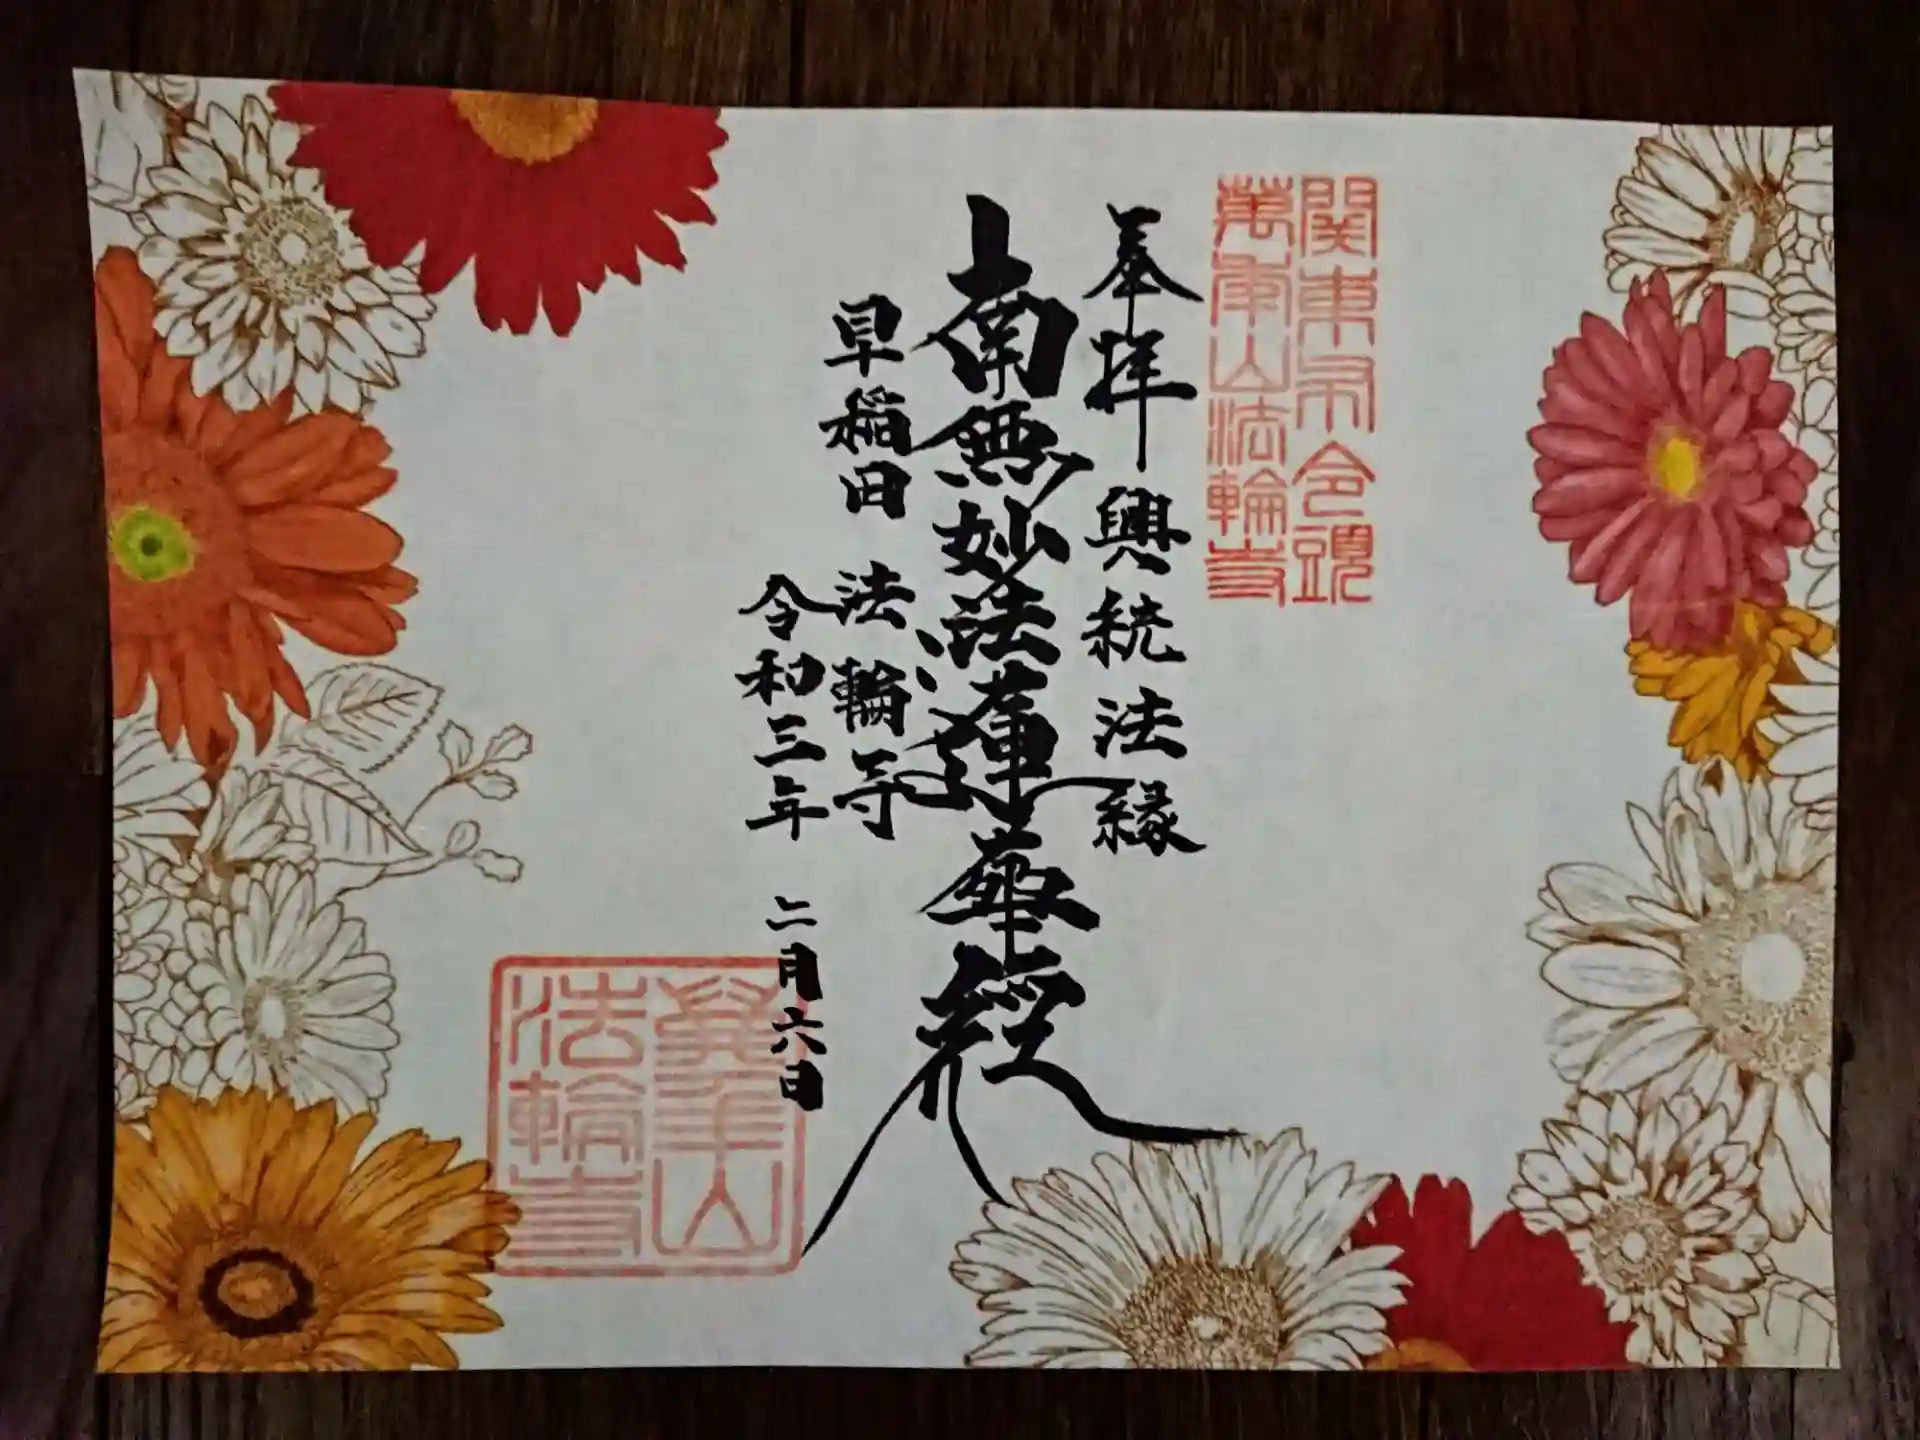 関東
萬年山法輪寺
奉拝 興統法縁
南無妙法蓮華経
早稲田 法輪寺
令和三年 二月六日
萬年山
法輪寺